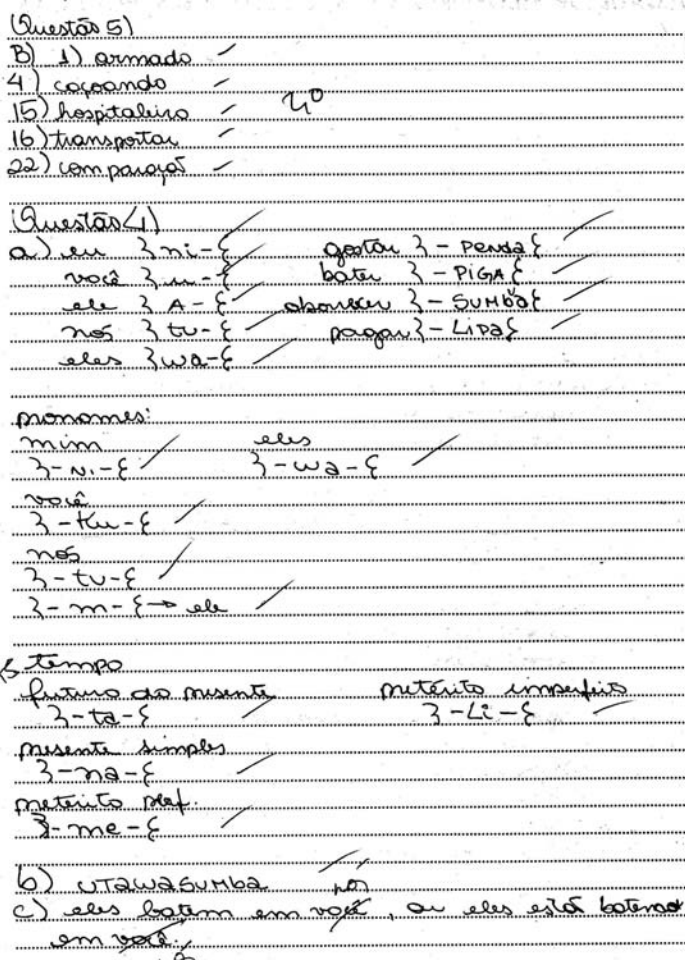 (Questão 5)
B) 1) armado
4) caçoando
15) hospitaleiro 4º
16) transportar
22) comparação
(Questão 4)
a) eu }ni-{ gostar }-penda{
você }u-{ bater }-PiGA{
ele }A-{ aborrecer }-SUMba{
nós }tu-{ pagar }-Lipa{
eles }wa-{
pronomes:
mim eles
}-Ni-{ }-wa-{
você
}-Ku-{
nós
}-tu-{
}-m-{→ ele
tempo
futuro do presente pretérito imperfeito
}-ta-{ }-Li-{
presente simples
}-na-{
pretérito perf.
}-me-{
b) UTawasUMba
c) eles batem em você, ou eles está batendo
em você.